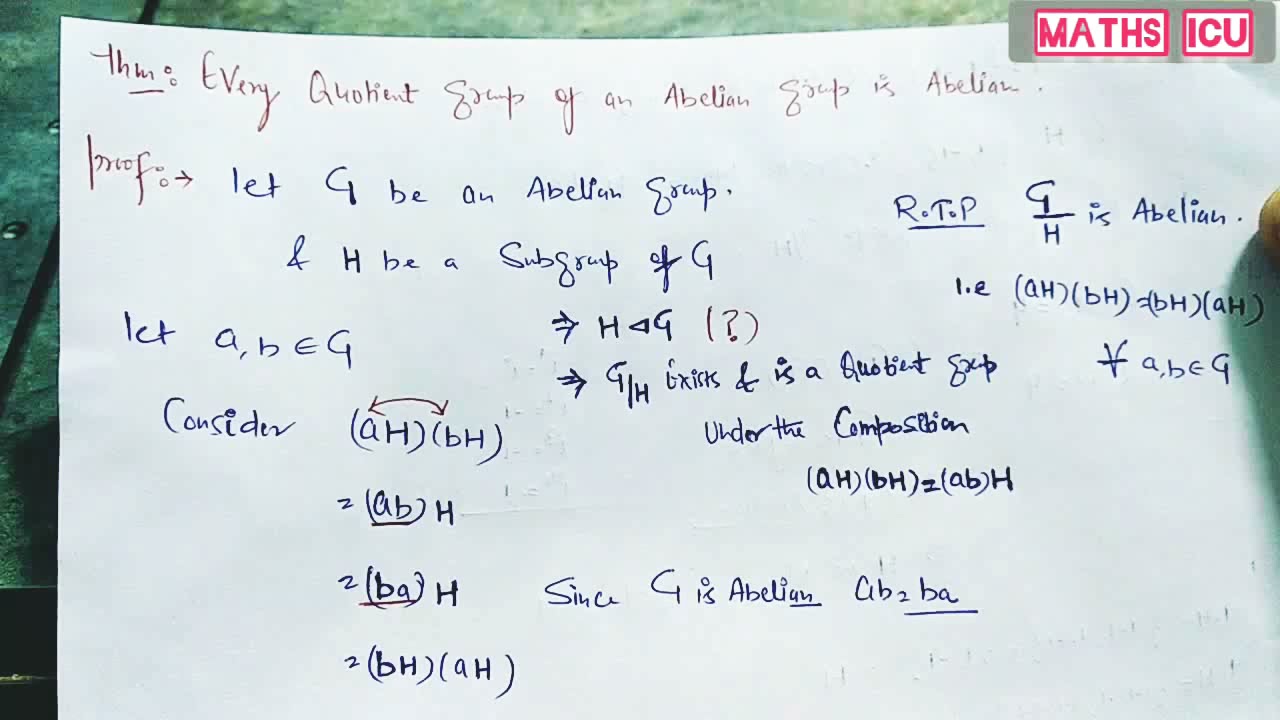 MATHS ICU
Thm: Every Quotient group of an Abelian group is Abelian.
Proof:→ let G be an Abelian group.
& H be a Subgroup of G
⇒ H ⊲ G (?)
⇒ G/H Exists & is a Quotient group
Under the Composition
(aH)(bH) = (ab)H
R.T.P G/H is Abelian.
i.e (aH)(bH) = (bH)(aH)
∀ a,b ∈ G
let a, b ∈ G
Consider (aH)(bH)
= (ab) H
= (ba) H Since G is Abelian ab = ba
= (bH)(aH)